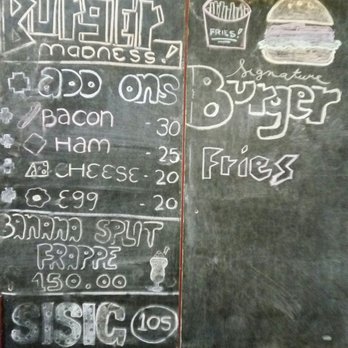 BURGER
MADNESS!
ADD ONS
BACON - 30
HAM - 25
CHEESE - 20
EGG - 20
BANANA SPLIT
FRAPPE
150.00
SISIG 105
FRIES!
Signature
Burger
Fries